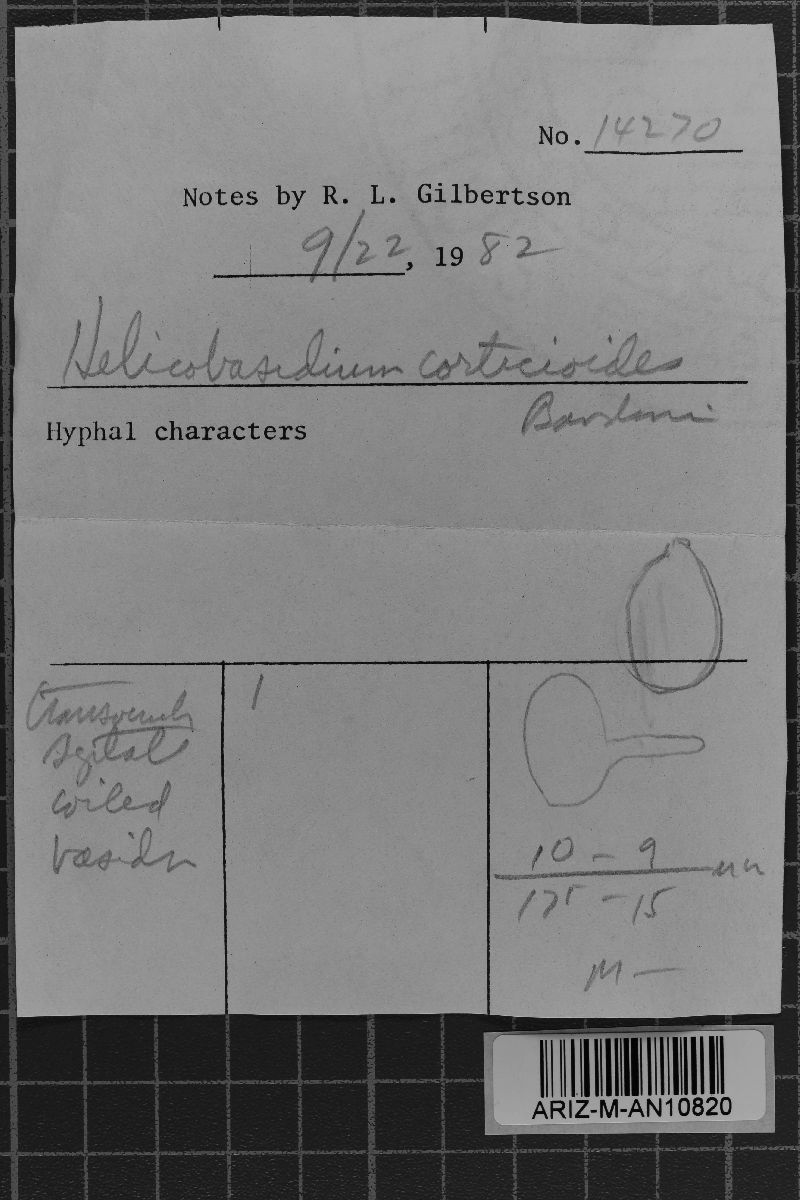 No. 14270
Notes by R. L. Gilbertson
9/22, 1982
Helicobasidium corticioides
Bandoni
Hyphal characters
septal
coiled
1
10 - 9
- 15
M -
ARIZ-M-AN10820